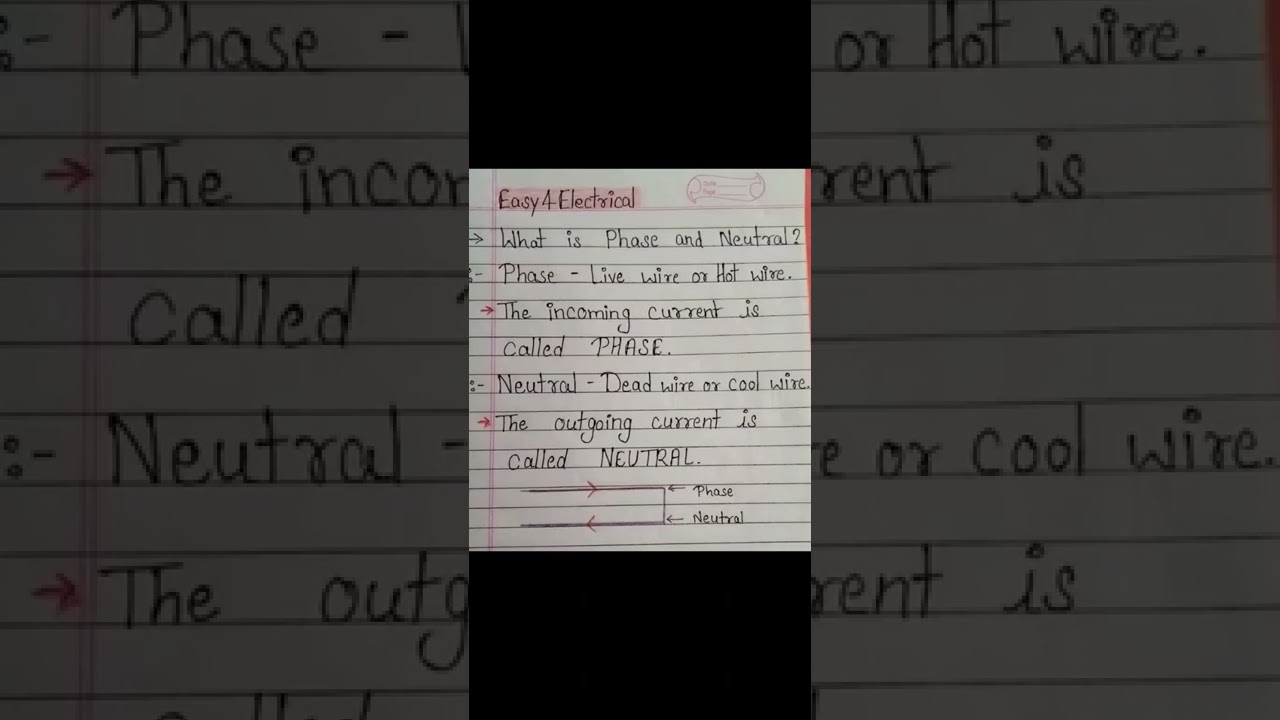 Easy4Electrical
→ What is Phase and Neutral?
:- Phase - Live wire or Hot wire.
→ The incoming current is
called PHASE.
:- Neutral - Dead wire or cool wire.
→ The outgoing current is
called NEUTRAL.
← Phase
← Neutral